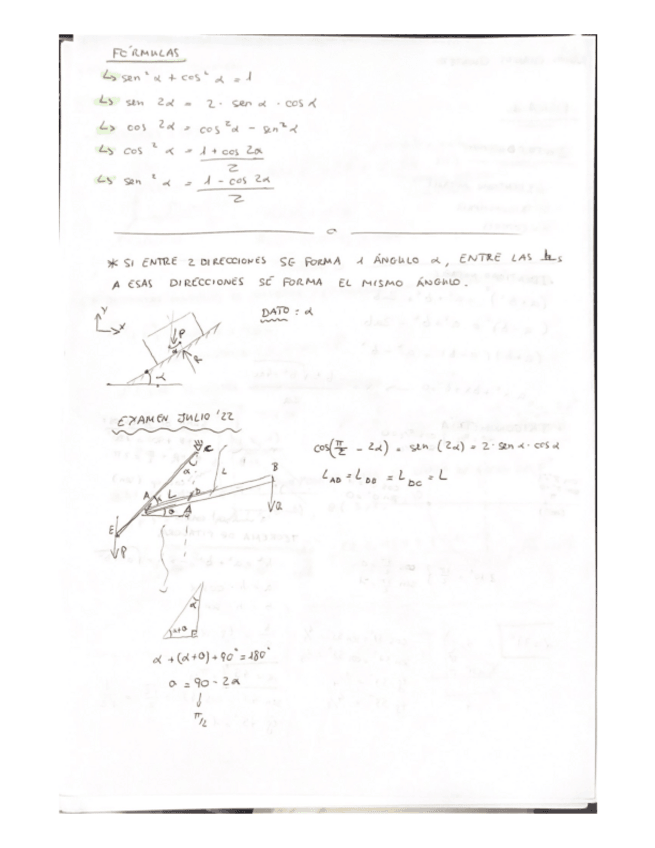 FÓRMULAS
↳ sen² α + cos² α = 1
↳ sen 2α = 2 · sen α · cos α
↳ cos 2α = cos² α - sen² α
↳ cos² α = (1 + cos 2α)/2
↳ sen² α = (1 - cos 2α)/2
* SI ENTRE 2 DIRECCIONES SE FORMA 1 ÁNGULO α, ENTRE LAS ⊥s
A ESAS DIRECCIONES SE FORMA EL MISMO ÁNGULO.
DATO : α
y
x
P
R
α
EXAMEN JULIO '22
cos(π/2 - 2α) = sen (2α) = 2 · sen α · cos α
L_AD = L_DB = L_DC = L
C
α
L
B
A
L
D
θ
Q
E
P
α
α+θ
α + (α+θ) + 90° = 180°
θ = 90 - 2α
↓
π/2